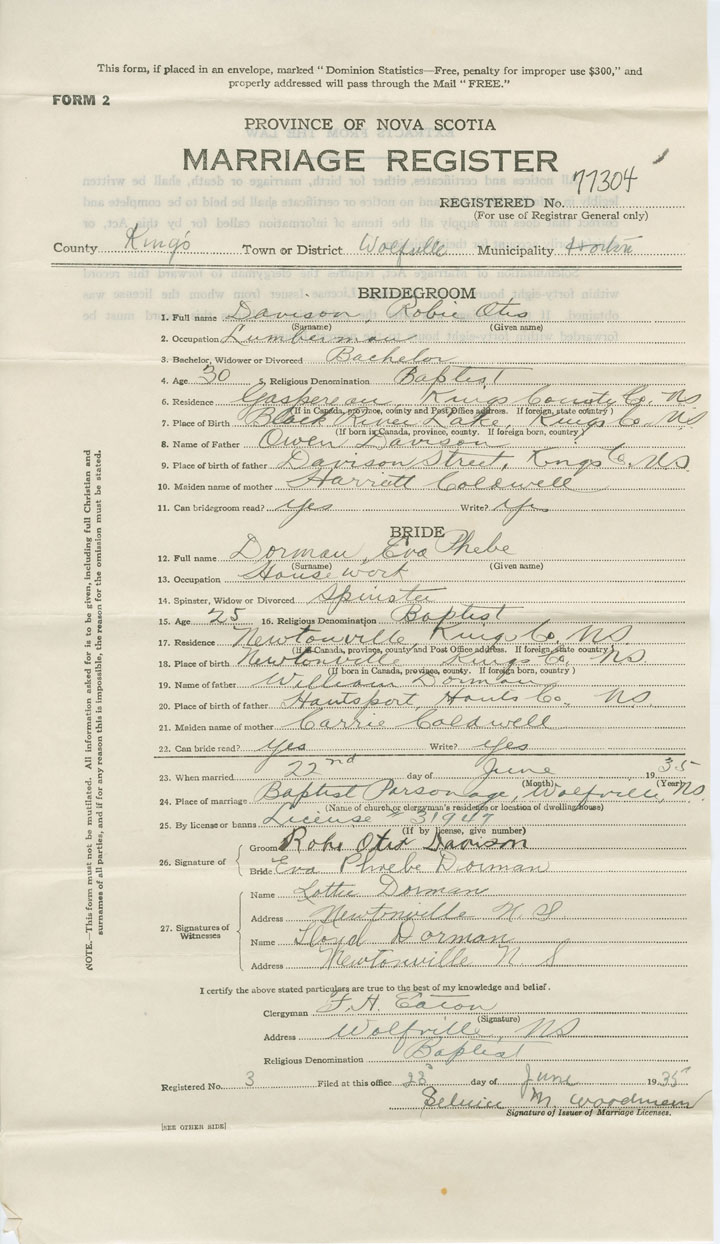 This form, if placed in an envelope, marked "Dominion Statistics—Free, penalty for improper use $300," and
properly addressed will pass through the Mail "FREE."
FORM 2
PROVINCE OF NOVA SCOTIA
MARRIAGE REGISTER
REGISTERED No. 77304
(For use of Registrar General only)
County King's Town or District Wolfville Municipality Horton
BRIDEGROOM
1. Full name Davison, Robie Otis
(Surname) (Given name)
2. Occupation Lumberman
3. Bachelor, Widower or Divorced Bachelor
4. Age 30 5. Religious Denomination Baptist
6. Residence Gaspereau, Kings County Co. NS
(If in Canada, province, county and Post Office address. If foreign, state country)
7. Place of Birth Black River Lake, Kings Co. NS
(If born in Canada, province, county. If foreign born, country)
8. Name of Father Owen Davison
9. Place of birth of father Davison Street, Kings Co. NS
10. Maiden name of mother Harriett Coldwell
11. Can bridegroom read? yes Write? yes
BRIDE
12. Full name Dorman, Eva Phebe
(Surname) (Given name)
13. Occupation House work
14. Spinster, Widow or Divorced Spinster
15. Age 25 16. Religious Denomination Baptist
17. Residence Newtonville, Kings Co. NS
(If in Canada, province, county and Post Office address. If foreign, state country)
18. Place of birth Newtonville Kings Co. NS.
(If born in Canada, province, county. If foreign born, country)
19. Name of father William Dorman
20. Place of birth of father Hantsport, Hants Co., NS.
21. Maiden name of mother Carrie Coldwell
22. Can bride read? yes Write? yes
23. When married 22nd day of June 1935
(Month) (Year)
24. Place of marriage Baptist Parsonage, Wolfville, NS.
(Name of church or clergyman's residence or location of dwelling house)
25. By license or banns License # 31947
(If by license, give number)
26. Signature of
Groom Robi Otis Davison
Bride Eva Phoebe Dorman
27. Signatures of Witnesses
Name Lottie Dorman
Address Newtonville N. S
Name Lloyd Dorman
Address Newtonville N S
I certify the above stated particulars are true to the best of my knowledge and belief.
Clergyman F. H. Eaton
(Signature)
Address Wolfville, NS
Religious Denomination Baptist
Registered No. 3 Filed at this office 23 day of June 1935
M. Woodman
Signature of Issuer of Marriage Licenses.
[SEE OTHER SIDE]
NOTE.—This form must not be mutilated. All information asked for is to be given, including full Christian and
surnames of all parties, and if for any reason this is impossible, the reason for the omission must be stated.